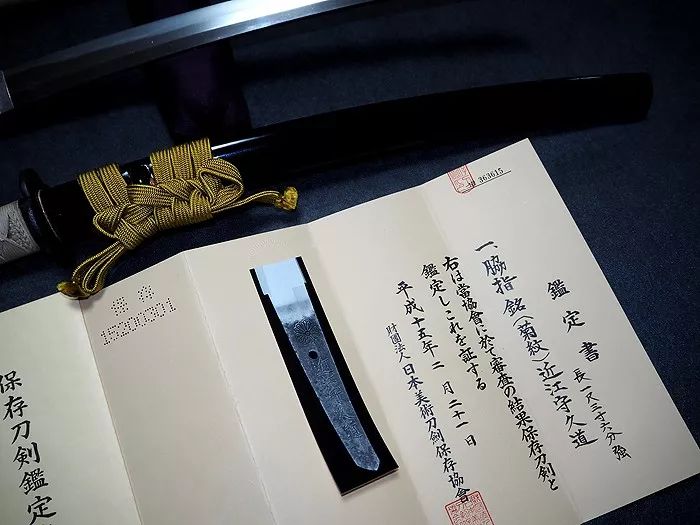 363615
鑑定書
一、脇指 銘(菊紋)近江守久道
長一尺三寸六分強
右は當協會に於て審査の結果保存刀剣と
鑑定しこれを証する
平成十五年二月二十一日
財團法人日本美術刀剣保存協會
保存刀剣鑑定